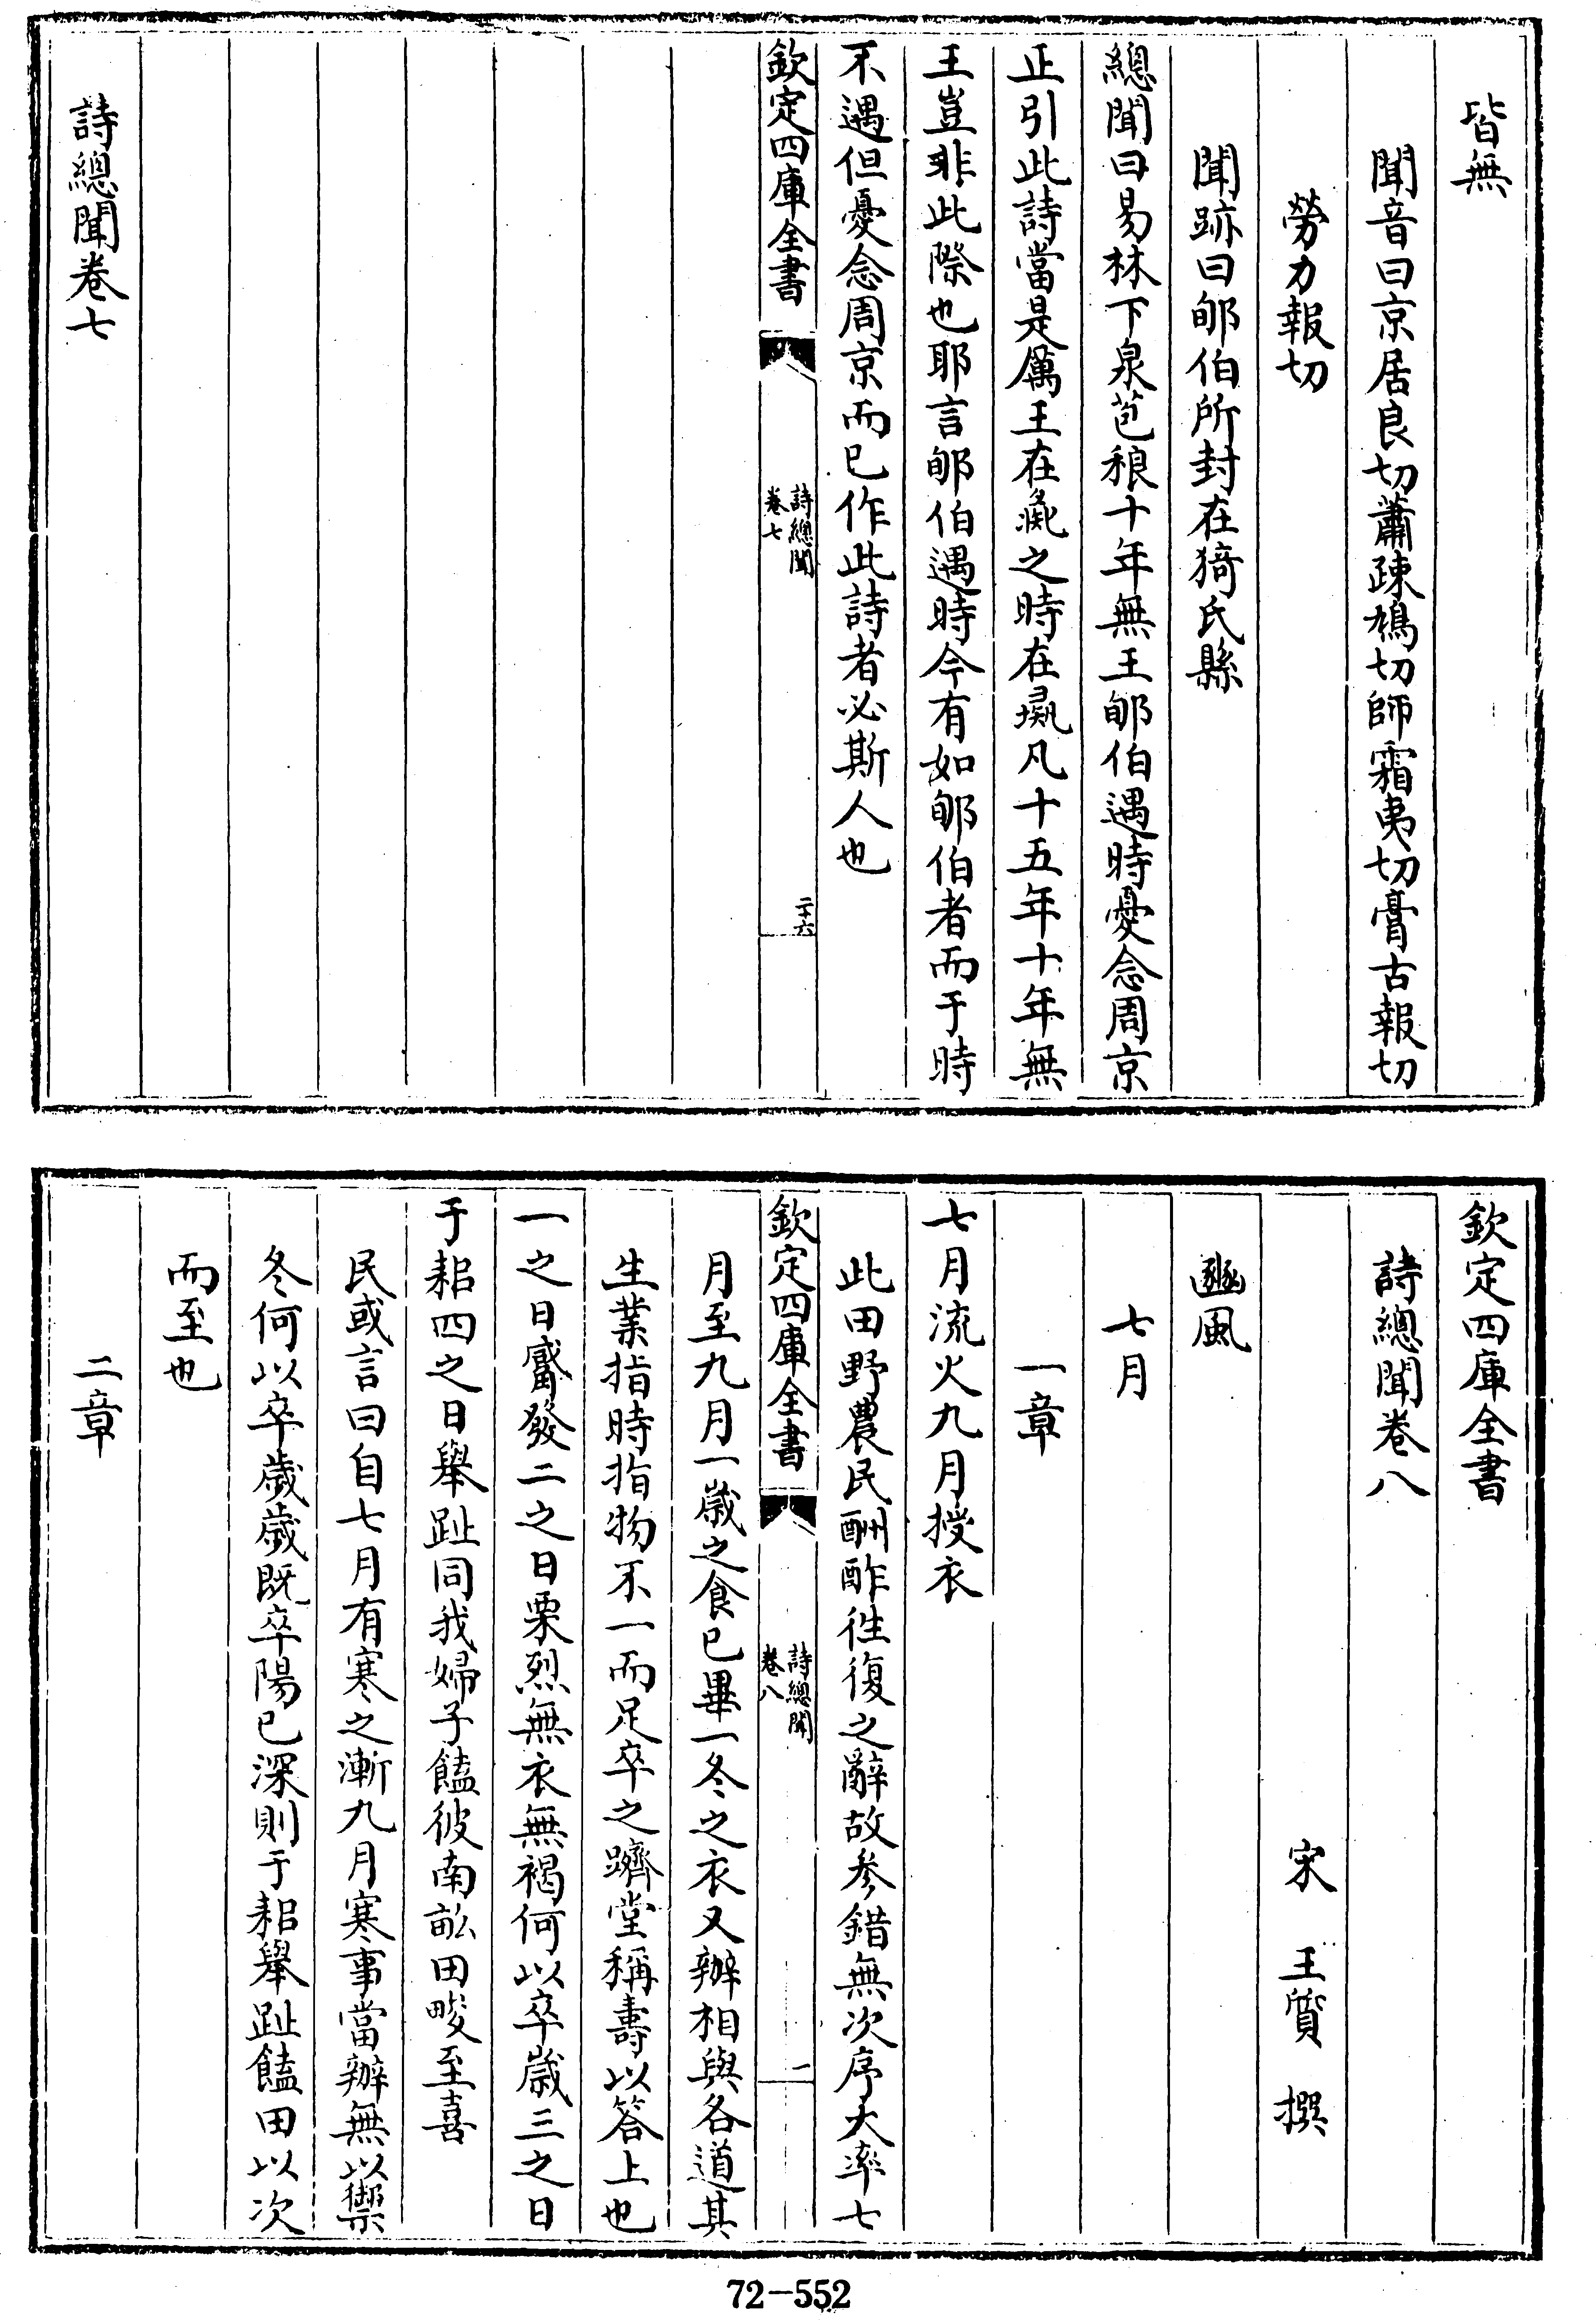 皆無
聞音曰京居良切蕭疎鳩切師霜夷切膏古報切
勞力報切
聞跡曰郇伯所封在猗氏縣
總聞曰易林下泉苞稂十年無王郇伯遇時憂念周京
正引此詩當是厲王在彘之時在彘凡十五年十年無
王豈非此際也耶言郇伯遇時今有如郇伯者而于時
不遇但憂念周京而已作此詩者必斯人也
欽定四庫全書
詩總聞
卷七
二十六
詩總聞卷七
欽定四庫全書
詩總聞卷八
宋 王質 撰
豳風
七月
一章
七月流火九月授衣
此田野農民酬酢徃復之辭故參錯無次序大率七
欽定四庫全書
詩總聞
卷八
一
月至九月一歲之食已畢一冬之衣又辦相與各道其
生業指時指物不一而足卒之躋堂稱壽以答上也
一之日觱發二之日栗烈無衣無褐何以卒歲三之日
于耜四之日舉趾同我婦子饁彼南畝田畯至喜
民或言曰自七月有寒之漸九月寒事當辦無以禦
冬何以卒歲歲既卒陽已深則于耜舉趾饁田以次
而至也
二章
72-552